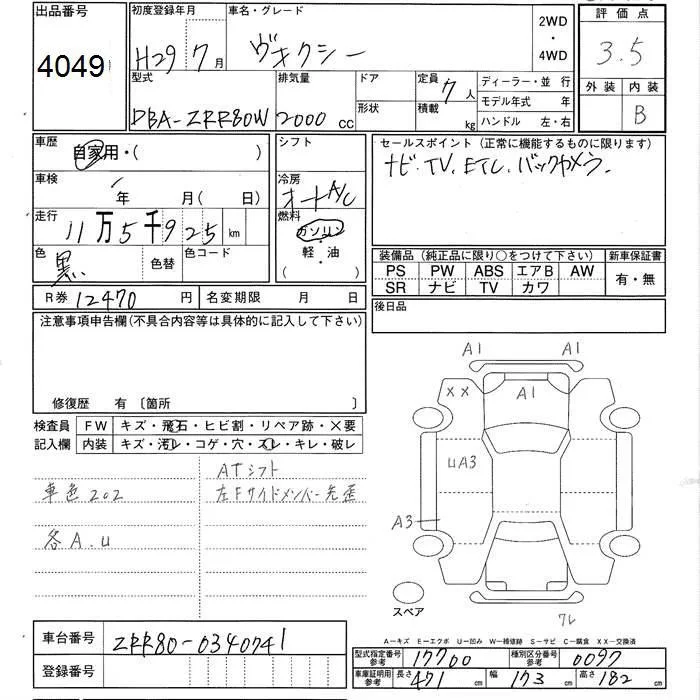 出品番号
4049
初度登録年月
H29 7月
車名・グレード
ヴォクシー
2WD
・
4WD
評価点
3.5
外装 内装
B
型式
DBA-ZRR80W
排気量
2000 cc
ドア
形状
定員 7人
積載 kg
ディーラー・並行
モデル年式 年
ハンドル 左・右
車歴
自家用・( )
シフト
セールスポイント(正常に機能するものに限ります)
ナビ. TV. ETC. バックカメラ.
車検
年 月( 日)
冷房
オートA/C
走行
11万5千925km
燃料
ガソリン
・
軽・油
( )
色
黒
色替
色コード
装備品(純正品に限り○をつけて下さい)
新車保証書
PS PW ABS エアB AW
SR ナビ TV カワ
有・無
R券 12470 円
名変期限 月 日
後日品
注意事項申告欄(不具合内容等は具体的に記入して下さい)
修復歴 有〔箇所 〕
検査員
記入欄
FW キズ・飛石・ヒビ割・リペア跡・×要
内装 キズ・汚れ・コゲ・穴・スレ・キレ・破レ
ATシフト
車色202
左Fサイドメンバー先歪
各A.U
A1 A1
XX A1
UA3
A3
スペア
フレ
A-キズ E-エクボ U-凹み W-補修跡 S-サビ C-腐食 XX-交換済
車台番号 ZRR80-0340741
登録番号
型式指定番号
参考
17700
種別区分番号
参考
0097
車庫証明用
参考
長さ 471 cm 幅 173 cm 高さ 182 cm